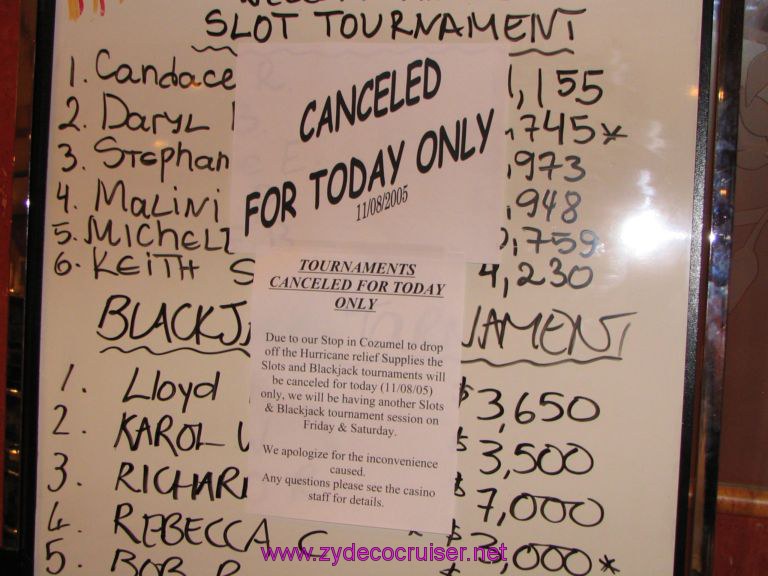 SLOT TOURNAMENT
1. Candace R. 1,155
2. DARYL ,745*
3. Stephan ,973
4. MALINI ,948
5. MICHELL ,759
6. KEITH S 4,230
CANCELED
FOR TODAY ONLY
11/08/2005
TOURNAMENTS
CANCELED FOR TODAY
ONLY
Due to our Stop in Cozumel to drop
off the Hurricane relief Supplies the
Slots and Blackjack tournaments will
be canceled for today (11/08/05)
only, we will be having another Slots
& Blackjack tournament session on
Friday & Saturday.
We apologize for the inconvenience
caused.
Any questions please see the casino
staff for details.
BLACKJ NAMENT
1. Lloyd $3,650
2. KAROL $3,500
3. RICHAR $7,000
4. REBECCA C $3,000*
5. BOB
www.zydecocruiser.net